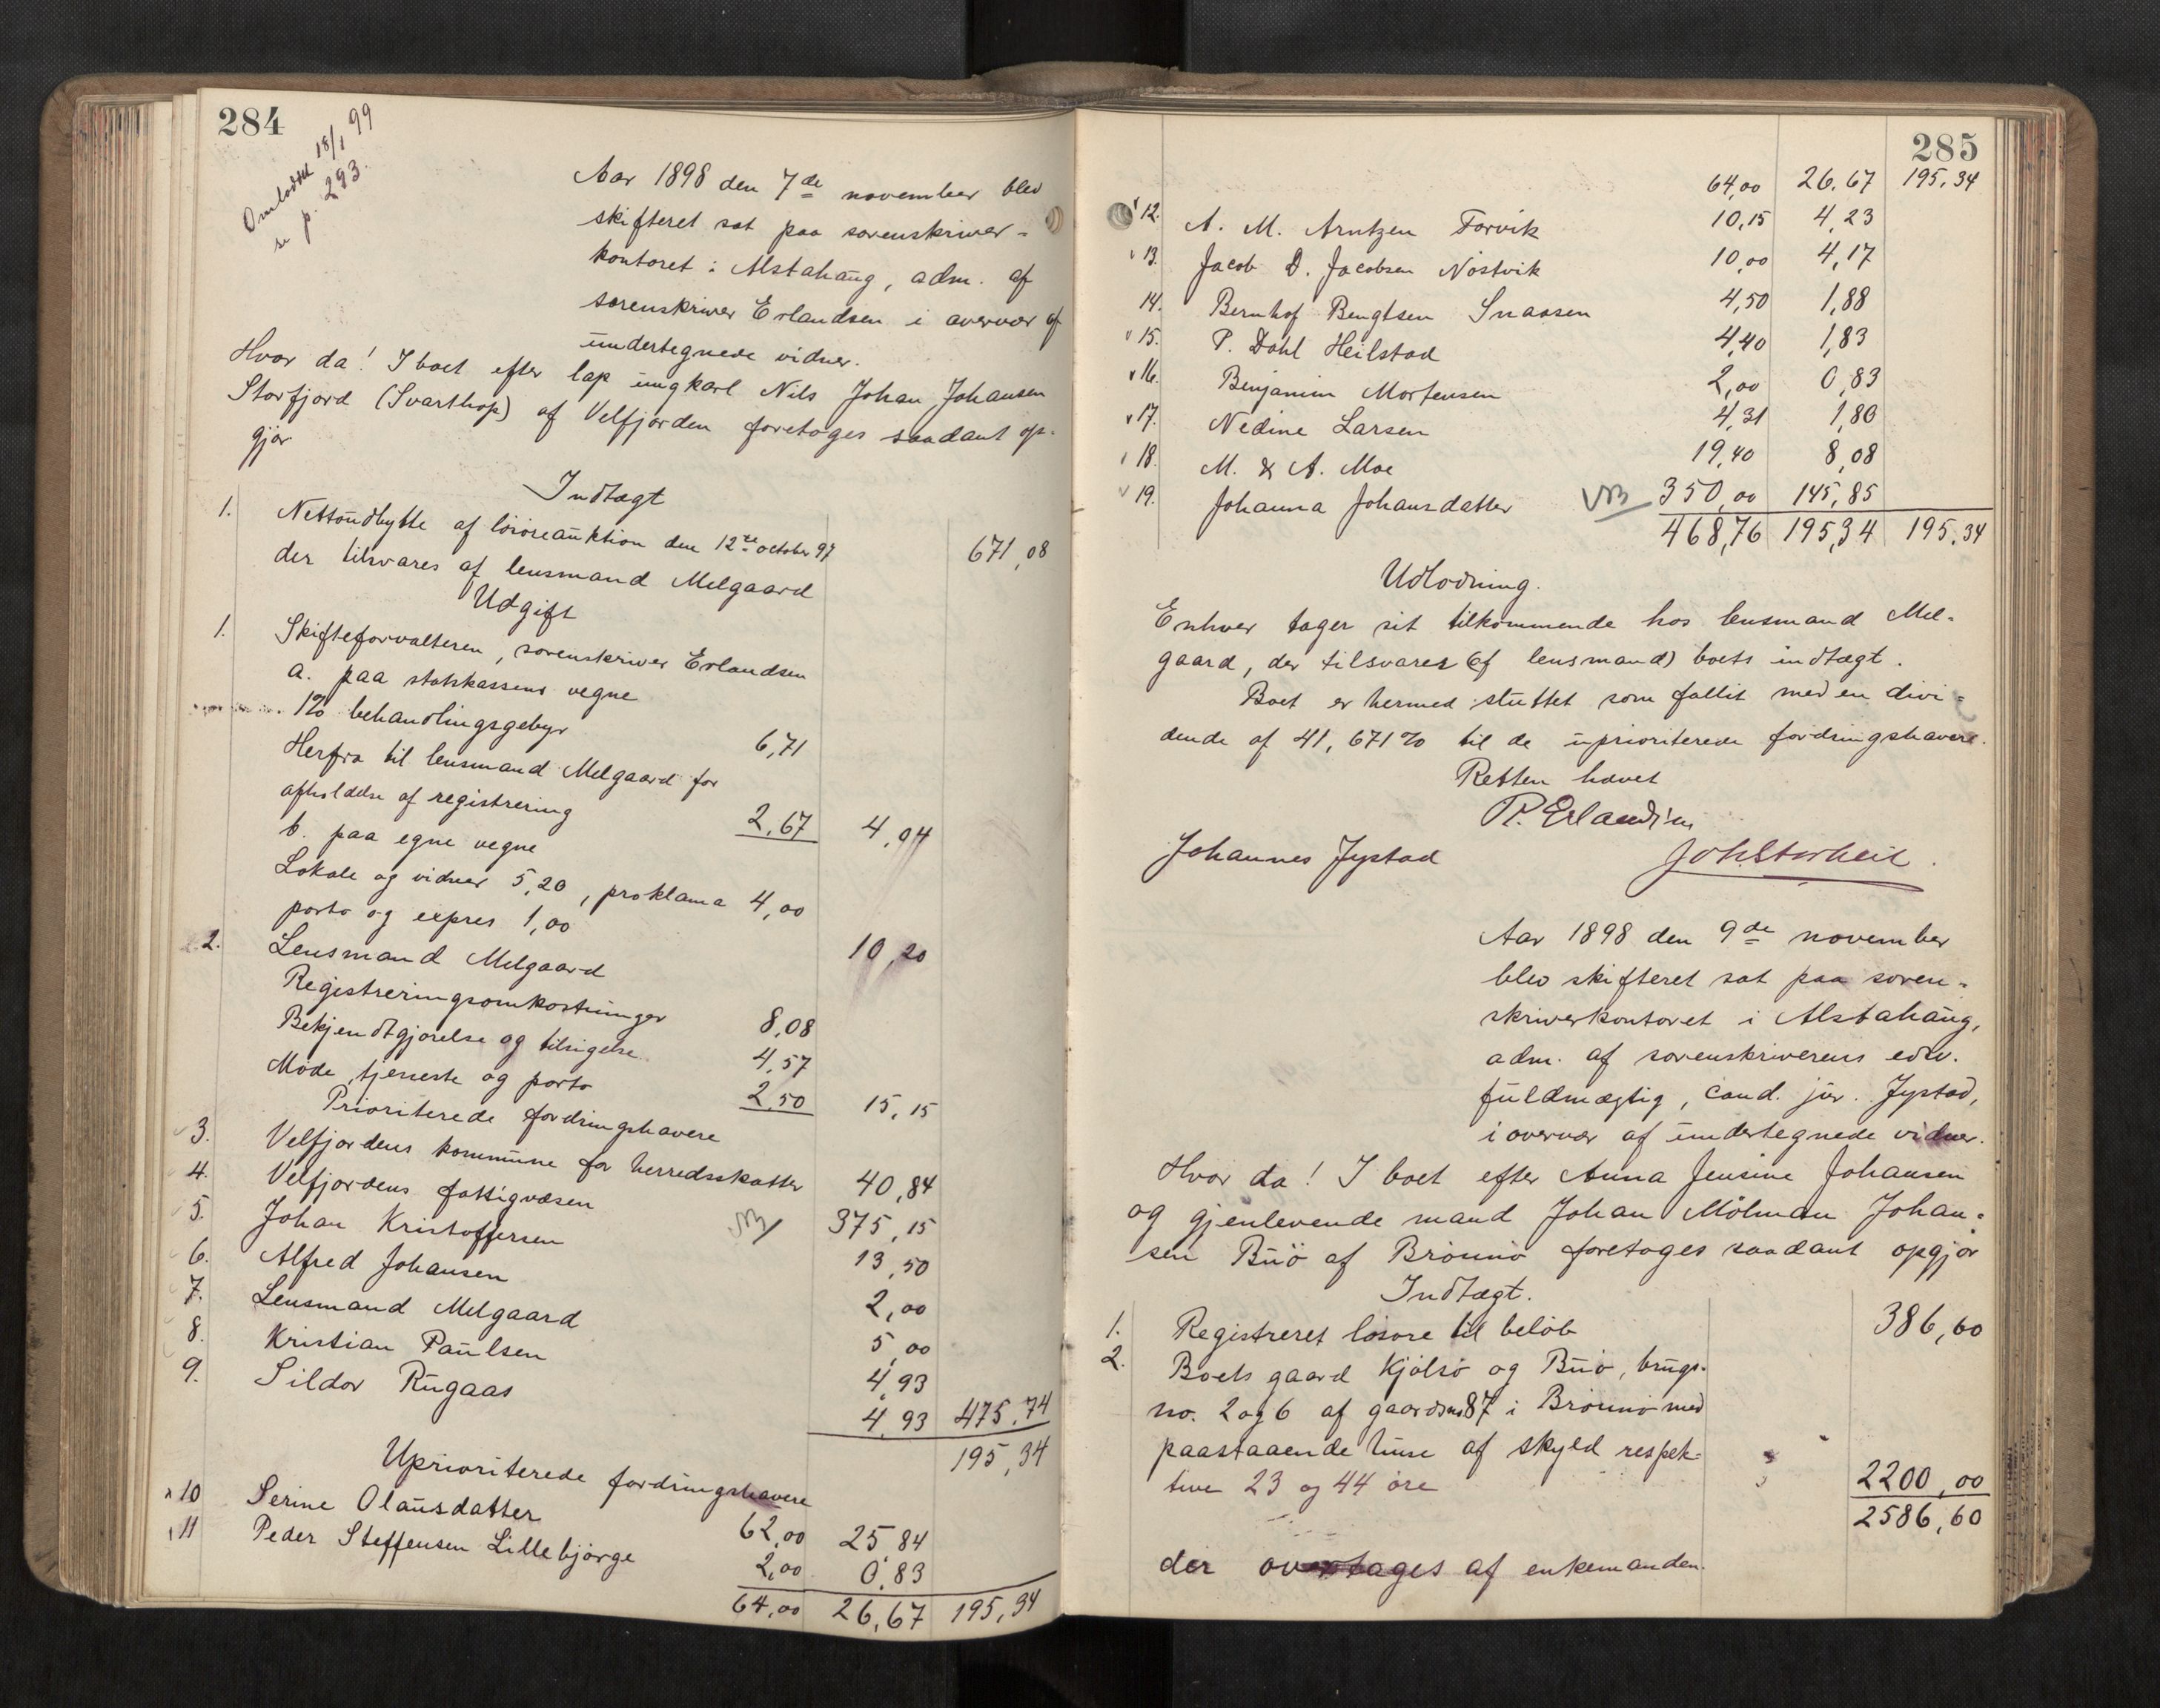 284
Omlodtet 18/1 99
se p. 293.
Aar 1898 den 7de november blev
skifteret sat paa sorenskriver-
kontoret i Alstahaug, adm. af
sorenskriver Erlandsen i overvær af
undertegnede vidner.
Hvor da! I boet efter lap ungkarl Nils Johan Johansen
Storfjord (Svarthop) af Velfjorden foretoges saadant op-
gjør
Indtægt
1. Nettoudbytte af løsøreauktion den 12te october 97
der tilsvares af lensmand Melgaard 671,08
Udgift
1. Skifteforvalteren, sorenskriver Erlandsen
a. paa statskassens vegne
1% behandlingsgebyr 6,71
Herfra til lensmand Melgaard for
afholdelse af registrering 2,67 4,04
b. paa egne vegne
Lokale og vidner 5,20, proklama 4,00
porto og expres 1,00 10,20
2. Lensmand Melgaard
Registreringsomkostninger 8,08
Bekjendtgjørelse og tilsigelse 4,57
Møde, tjeneste og porto 2,50 15,15
Prioriterede fordringshavere
3. Velfjordens kommune for herredsskatter 40,84
4. Velfjordens fattigvæsen 375,15
5. Johan Kristoffersen NB 13,50
6. Alfred Johansen 2,00
7. Lensmand Melgaard 5,00
8. Kristian Paulsen 4,93
9. Sildor Rugaas 4,93 475,74
195,34
Uprioriterede fordringshavere
10 Serine Olausdatter 62,00 25,84
11 Peder Steffensen Lillebjørge 2,00 0,83
64,00 26,67 195,34
285
64,00 26,67 195,34
12. A. M. Arntzen Forvik 10,15 4,23
13. Jacob D. Jacobsen Nøstvik 10,00 4,17
14. Bernhof Bengtsen Snaasen 4,50 1,88
15. P. Dahl Heilstad 4,40 1,83
16. Benjamin Mortensen 2,00 0,83
17. Nedine Larsen 4,31 1,80
18. M. & A. Moe 19,40 8,08
19. Johanna Johansdatter NB 350,00 145,85
468,76 195,34 195,34
Udlodning.
Enhver tager sit tilkommende hos lensmand Mel-
gaard, der tilsvarer (af lensmand) boets indtægt.
Boet er hermed sluttet som fallit med en divi-
dende af 41,671% til de uprioriterede fordringshavere.
Retten hævet
P. Erlandsen
Johannes Jystad Joh. Storheil.
Aar 1898 den 9de november
blev skifteret sat paa soren-
skriverkontoret i Alstahaug,
adm. af sorenskriverens edsv.
fuldmægtig, cand. jur. Jystad,
i overvær af undertegnede vidner.
Hvor da! I boet efter Anna Jensine Johansen
og gjenlevende mand Johan Mølman Johan-
sen Buø af Brønnø foretoges saadant opgjør
Indtægt.
1. Registreret løsøre til beløb 386,60
2. Boets gaard Kjølsø og Buø, brugs-
no. 2 og 6 af gaardsno 87 i Brønnø med
paastaaende huse af skyld respek-
tive 23 og 44 øre 2200,00
2586,60
der overtages af enkemanden.